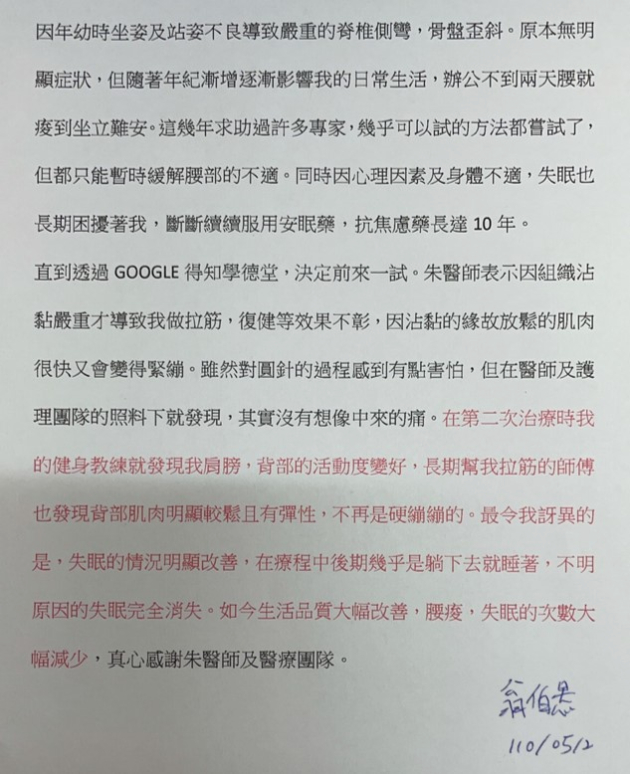 因年幼時坐姿及站姿不良導致嚴重的脊椎側彎，骨盤歪斜。原本無明
顯症狀，但隨著年紀漸增逐漸影響我的日常生活，辦公不到兩天腰就
痠到坐立難安。這幾年求助過許多專家，幾乎可以試的方法都嘗試了，
但都只能暫時緩解腰部的不適。同時因心理因素及身體不適，失眠也
長期困擾著我，斷斷續續服用安眠藥，抗焦慮藥長達 10 年。
直到透過 GOOGLE 得知學德堂，決定前來一試。朱醫師表示因組織沾
黏嚴重才導致我做拉筋，復健等效果不彰，因沾黏的緣故放鬆的肌肉
很快又會變得緊繃。雖然對圓針的過程感到有點害怕，但在醫師及護
理團隊的照料下就發現，其實沒有想像中來的痛。在第二次治療時我
的健身教練就發現我肩膀，背部的活動度變好，長期幫我拉筋的師傅
也發現背部肌肉明顯較鬆且有彈性，不再是硬繃繃的。最令我訝異的
是，失眠的情況明顯改善，在療程中後期幾乎是躺下去就睡著，不明
原因的失眠完全消失。如今生活品質大幅改善，腰痠，失眠的次數大
幅減少，真心感謝朱醫師及醫療團隊。
翁伯
110/05/12